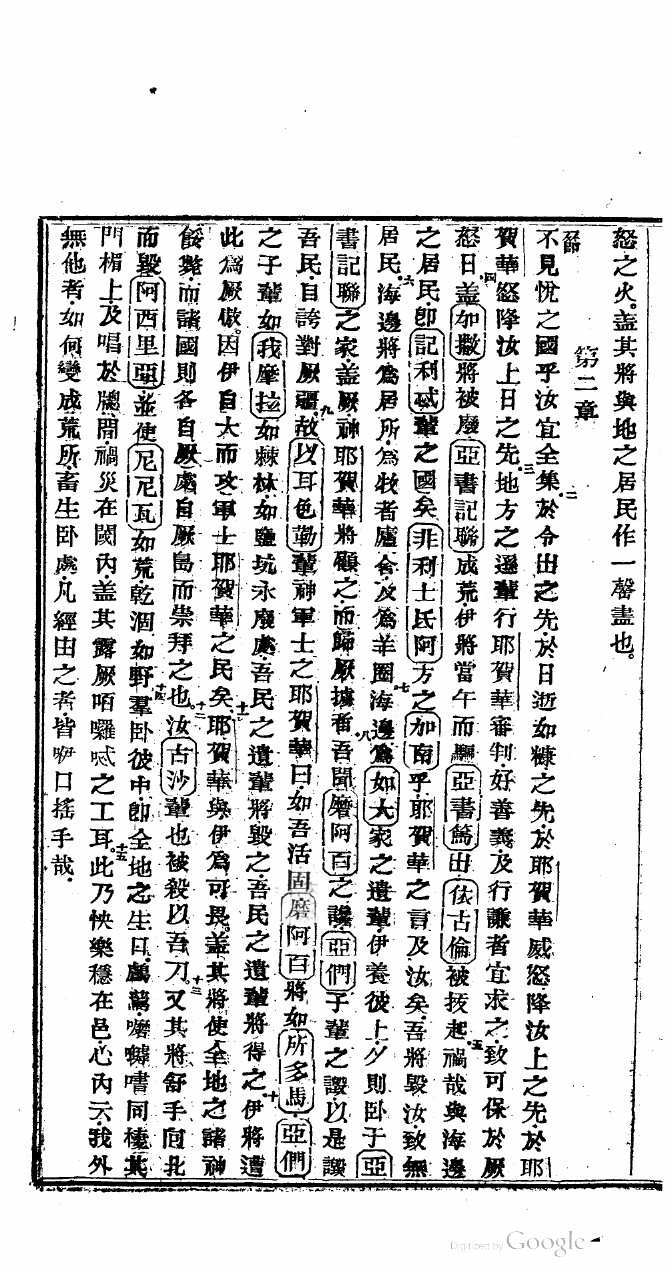 怒之火。盖其將與地之居民作一罄盡也。
第二章
節
不見悅之國乎汝宜全集。於令出之先。於日逝如糠之先。於耶賀華威怒降汝上之先。於耶
二
賀華怒降汝上日之先。地方之遜輩行耶賀華審判。好善義及行謙者宜求之。致可保於厥
三
怒日。盖加撒將被廢亞書記聯成荒伊將當午而驅亞書篤出。依古倫被拔起。禍哉與海邊
四 五
之居民。卽記利忒輩之國矣。非利士氏阿方之加南乎。耶賀華之言及汝矣。吾將毀汝致無
居民。海邊將爲居所。爲牧者廬舍。及爲羊圈海邊爲如大家之遺輩。伊養彼上。夕則卧于亞
六 七
書記聯之家。盖厥神耶賀華將顧之。而歸厥擄者吾聞磨阿百之讒。亞們子輩之謗。以是謗
八
吾民。自誇對厥疆。故以耳色勒輩神軍士之耶賀華曰。如吾活固磨阿百將如所多馬。亞們
九
之子輩如我摩拉如棘林。如鹽坑永廢處。吾民之遺輩將毀之。吾民之遺輩將得之。伊將遭
十
此爲厥傲。因伊自大而攻軍士耶賀華之民矣。耶賀華與伊爲可畏。盖其將使全地之諸神
十一
餒斃。而諸國則各自厥處自厥島而崇拜之也。汝古沙輩也被殺以吾刀。又其將舒手向北
十二 十三
而毀阿西里亞。並使尼尼瓦如荒乾涸如野羣卧彼中。卽全地之生口。鸕鶿同棲其
十四
門楣上。及唱於牕間。禍災在閾內。盖其露厥栢之工耳。此乃快樂穩在邑心內云。我外
十五
無他者。如何變成荒所。畜生卧處。凡經由之者皆口搖手哉。
Digitized by Google